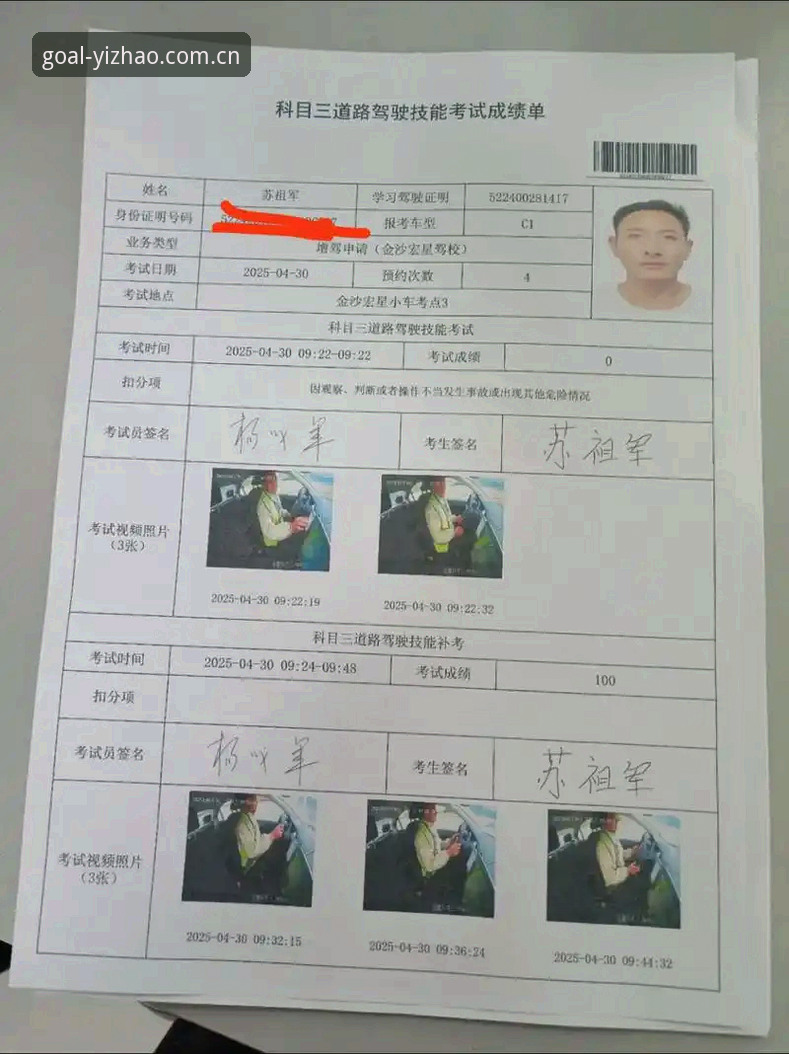 goal-yizhao.com.cn
科目三道路驾驶技能考试成绩单
姓名 苏祖军 学习驾驶证明 522400281417
身份证明号码 报考车型 C1
业务类型 增驾申请（金沙宏星驾校）
考试日期 2025-04-30 预约次数 4
考试地点 金沙宏星小车考点3
科目三道路驾驶技能考试
考试时间 2025-04-30 09:22-09:22 考试成绩 0
扣分项 因观察、判断或者操作不当发生事故或出现其他危险情况
考试员签名 考生签名 苏祖军
考试视频照片
（3张）
2025-04-30 09:22:19 2025-04-30 09:22:32
科目三道路驾驶技能补考
考试时间 2025-04-30 09:24-09:48 考试成绩 100
扣分项
考试员签名 考生签名 苏祖军
考试视频照片
（3张）
2025-04-30 09:32:15 2025-04-30 09:36:24 2025-04-30 09:44:32